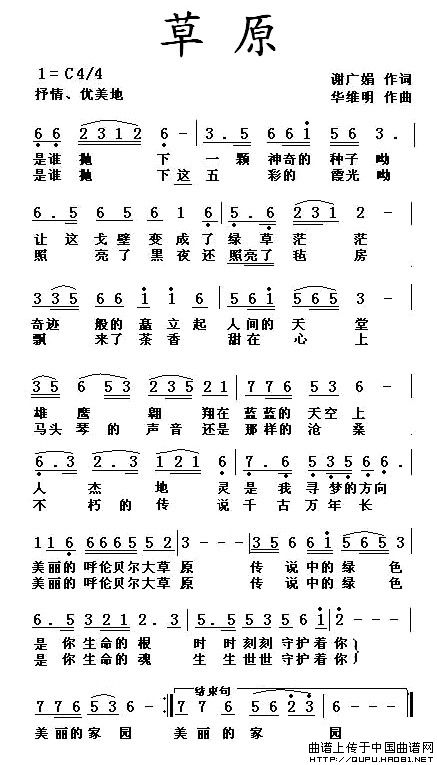 草原
1=C4/4
谢广娟 作词
抒情、优美地
华维明 作曲
6 6 2312 6 - 3.5 661 5 6 3.
是谁抛 下 一颗 神奇的 种子 呦
是谁抛 下这五 彩的 霞光呦
6.5 6 5 6 1 6 5.6 231 2 -
让这戈壁变成了绿草茫 茫
照 亮了黑夜还照亮了毡 房
335 66 i i 6 561 565 3 -
奇迹 般的矗立起 人间的天 堂
飘 来了茶香 甜在心 上
35 6 53 2 35 21 776 536 -
雄 鹰 翱 翔在蓝蓝的天空上
马头琴的声音还是那样的沧桑
6.3 2.3 121 6 7.6 5356 6.
人 杰 地 灵是我寻梦的方向
不 朽的传 说千古万年长
116 6665 52 3 - 3 5 66i 5653
美丽的呼伦贝尔大草 原 传 说中的绿 色
美丽的呼伦贝尔大草 原 传 说中的绿 色
6.5 3212 2.3 5.535 6561 2 - - -
是 你生命的根 时 时刻刻守护着你
是 你生命的魂 生 生世世守护着你
结束句
776 5 36 6 - 776 5623 6 -
美丽的家 园 美丽的家 园
曲谱上传于中国曲谱网
http://QUPU.HAO81.NET